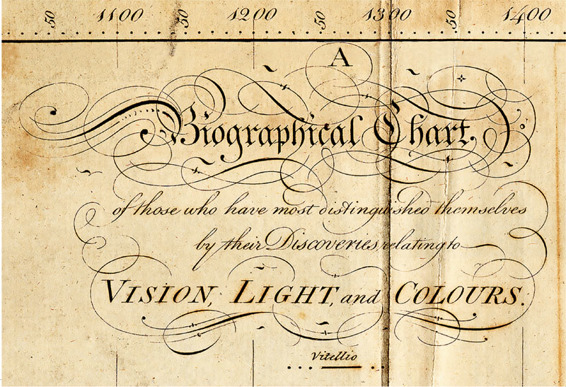 50 1100 50 1200 50 1300 50 1400
A
Biographical Chart,
of those who have most distinguished themselves
by their Discoveries relating to
VISION, LIGHT, and COLOURS.
Vitellio